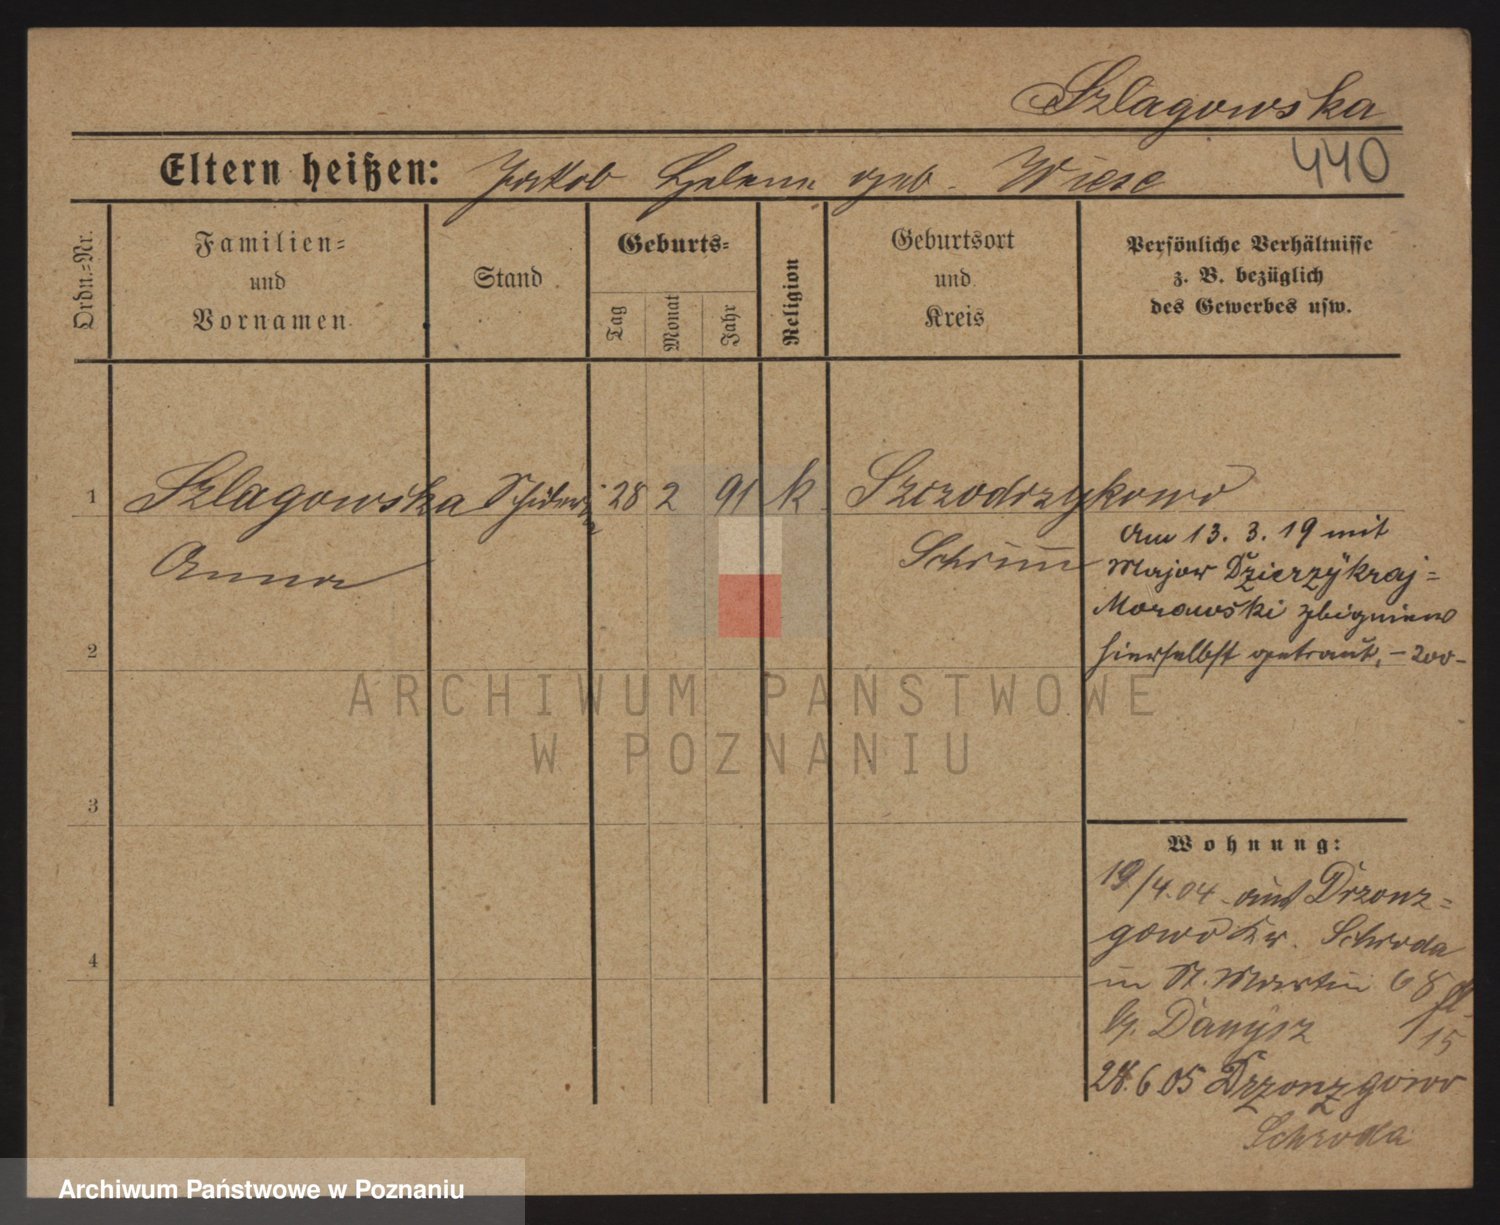 Szlagowska
440
Eltern heißen: Jakob Helene geb. Wiese
Ordn.-Nr.
Familien-
und
Vornamen
Stand
Geburts-
Tag
Monat
Jahr
Religion
Geburtsort
und
Kreis
Persönliche Verhältnisse
z. B. bezüglich
des Gewerbes usw.
1 Szlagowska Schülerin 28 2 91 k Szczodrzykowo
Anna Schrimm
Am 13. 3. 19 mit
Major Dzierzykraj-
Morawski Zbigniew
hierselbst getraut, - 200-
2
3
4
ARCHIWUM PAŃSTWOWE
W POZNANIU
Wohnung:
19/4.04 aus Drzonz-
gowo Kr. Schroda
in St. Martin 68
b. Danysz 1/15
28.6 05 Drzonzgowo
Schroda
Archiwum Państwowe w Poznaniu